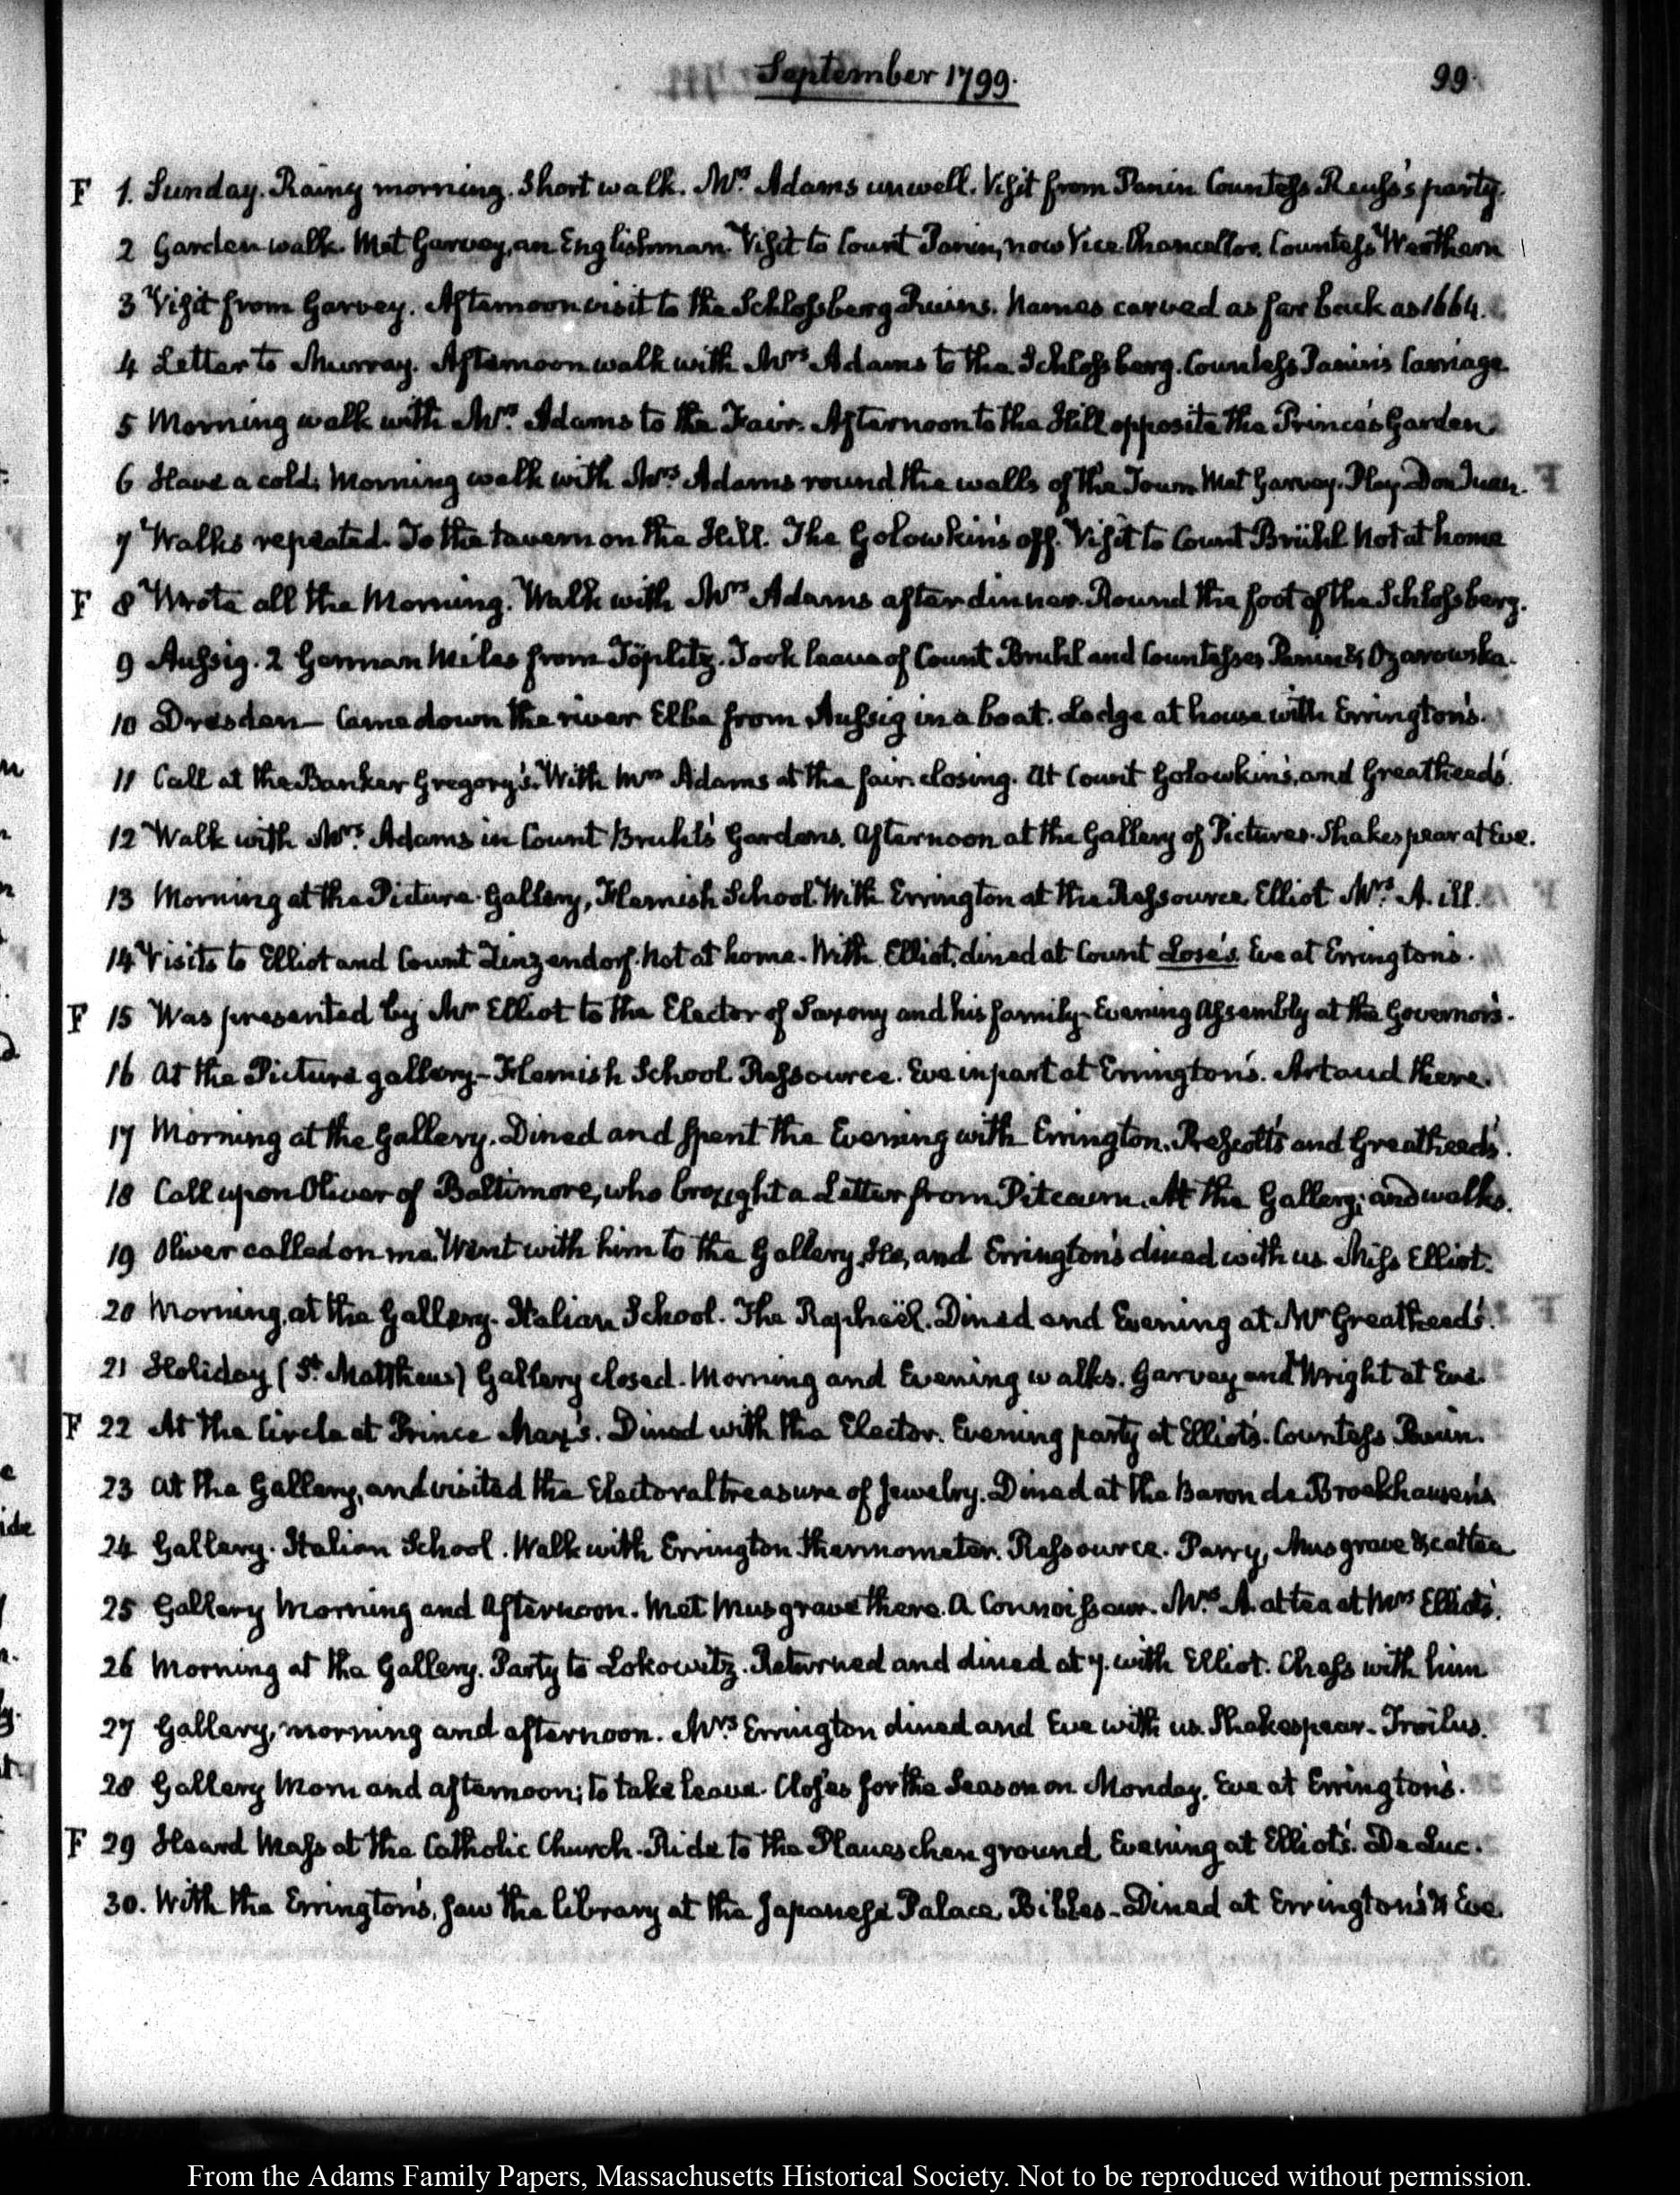 September 1799.
99.
F 1. Sunday. Rainy morning. Short walk. Mrs. Adams unwell. Visit from Panin Countess Reuss's party.
2 Garden walk. Met Garvey, an Englishman. Visit to Count Panin, now Vice Chancellor. Countess Werthern
3 Visit from Garvey. Afternoon visit to the Schlossberg Ruins. Names carved as far back as 1664.
4 Letter to Murray. Afternoon walk with Mrs Adams to the Schlossberg. Countess Panin's Carriage.
5 Morning walk with Mrs. Adams to the Fair. Afternoon to the Hill opposite the Prince's Garden.
6 Have a cold. Morning walk with Mrs. Adams round the walls of the Town. Met Garvey. Play. Don Juan.
7 Walks repeated. To the tavern on the Hill. The Golowkin's off. Visit to Count Brühl Not at home
F 8 Wrote all the Morning. Walk with Mrs Adams after dinner. Round the foot of the Schlossberg.
9 Aussig. 2 German Miles from Töplitz. Took leave of Count Bruhl and Countesses Panin & Ozarowska.
10 Dresden— Came down the river Elbe from Aussig in a boat. Lodge at house with Errington's.
11 Call at the Banker Gregory's. With Mrs Adams at the fair. closing. At Count Golowkin's, and Greatheed's.
12 Walk with Mrs. Adams in Count Bruhl's Gardens. Afternoon at the Gallery of Pictures. Shakespear at Eve.
13 Morning at the Picture Gallery, Flemish School. With Errington at the Ressource. Elliot Mrs. A. ill.
14 Visits to Elliot and Count Zinzendorf. Not at home. With Elliot, dined at Count Lose's. Eve at Errington's.
F 15 Was presented by Mr Elliot to the Elector of Saxony and his family. Evening Assembly at the Governor's.
16 At the Picture gallery—Flemish School. Ressource. Eve in part at Errington's. Artaud there.
17 Morning at the Gallery. Dined and spent the Evening with Errington. Prescott's and Greatheed's.
18 Call upon Oliver of Baltimore, who brought a Letter from Pitcairn. At the Gallery; and walks.
19 Oliver called on me. Went with him to the Gallery. He, and Errington's dined with us. Miss Elliot.
20 Morning, at the Gallery. Italian School. The Raphaël. Dined and Evening at Mr Greatheed's.
21 Holiday (St. Mattheus) Gallery closed. Morning and Evening walks. Garvey and Wright at Eve.
F 22 At the Circle at Prince Max's. Dined with the Elector. Evening party at Elliot's. Countess Panin.
23 At the Gallery, and visited the Electoral treasure of Jewelry. Dined at the Baron de Brockhausen's
24 Gallery. Italian School. Walk with Errington. Thermometer. Ressource. Parry, Musgrave &c at tea
25 Gallery Morning and Afternoon. Met Musgrave there. A Connoisseur. Mrs. A. at tea at Mrs Elliot's.
26 Morning at the Gallery. Party to Lokowitz. Returned and dined at 7. with Elliot. Chess with him
27 Gallery, morning and afternoon. Mrs. Errington dined and Eve with us. Shakespear. Troilus.
28 Gallery Morn and afternoon; to take leave. Closes for the Season on Monday. Eve at Errington's.
F 29 Heard Mass at the Catholic Church. Ride to the Plaueschen ground. Evening at Elliot's. De Luc.
30. With the Errington's, saw the library at the Japanese Palace. Bibles. Dined at Errington's & Eve.
From the Adams Family Papers, Massachusetts Historical Society. Not to be reproduced without permission.